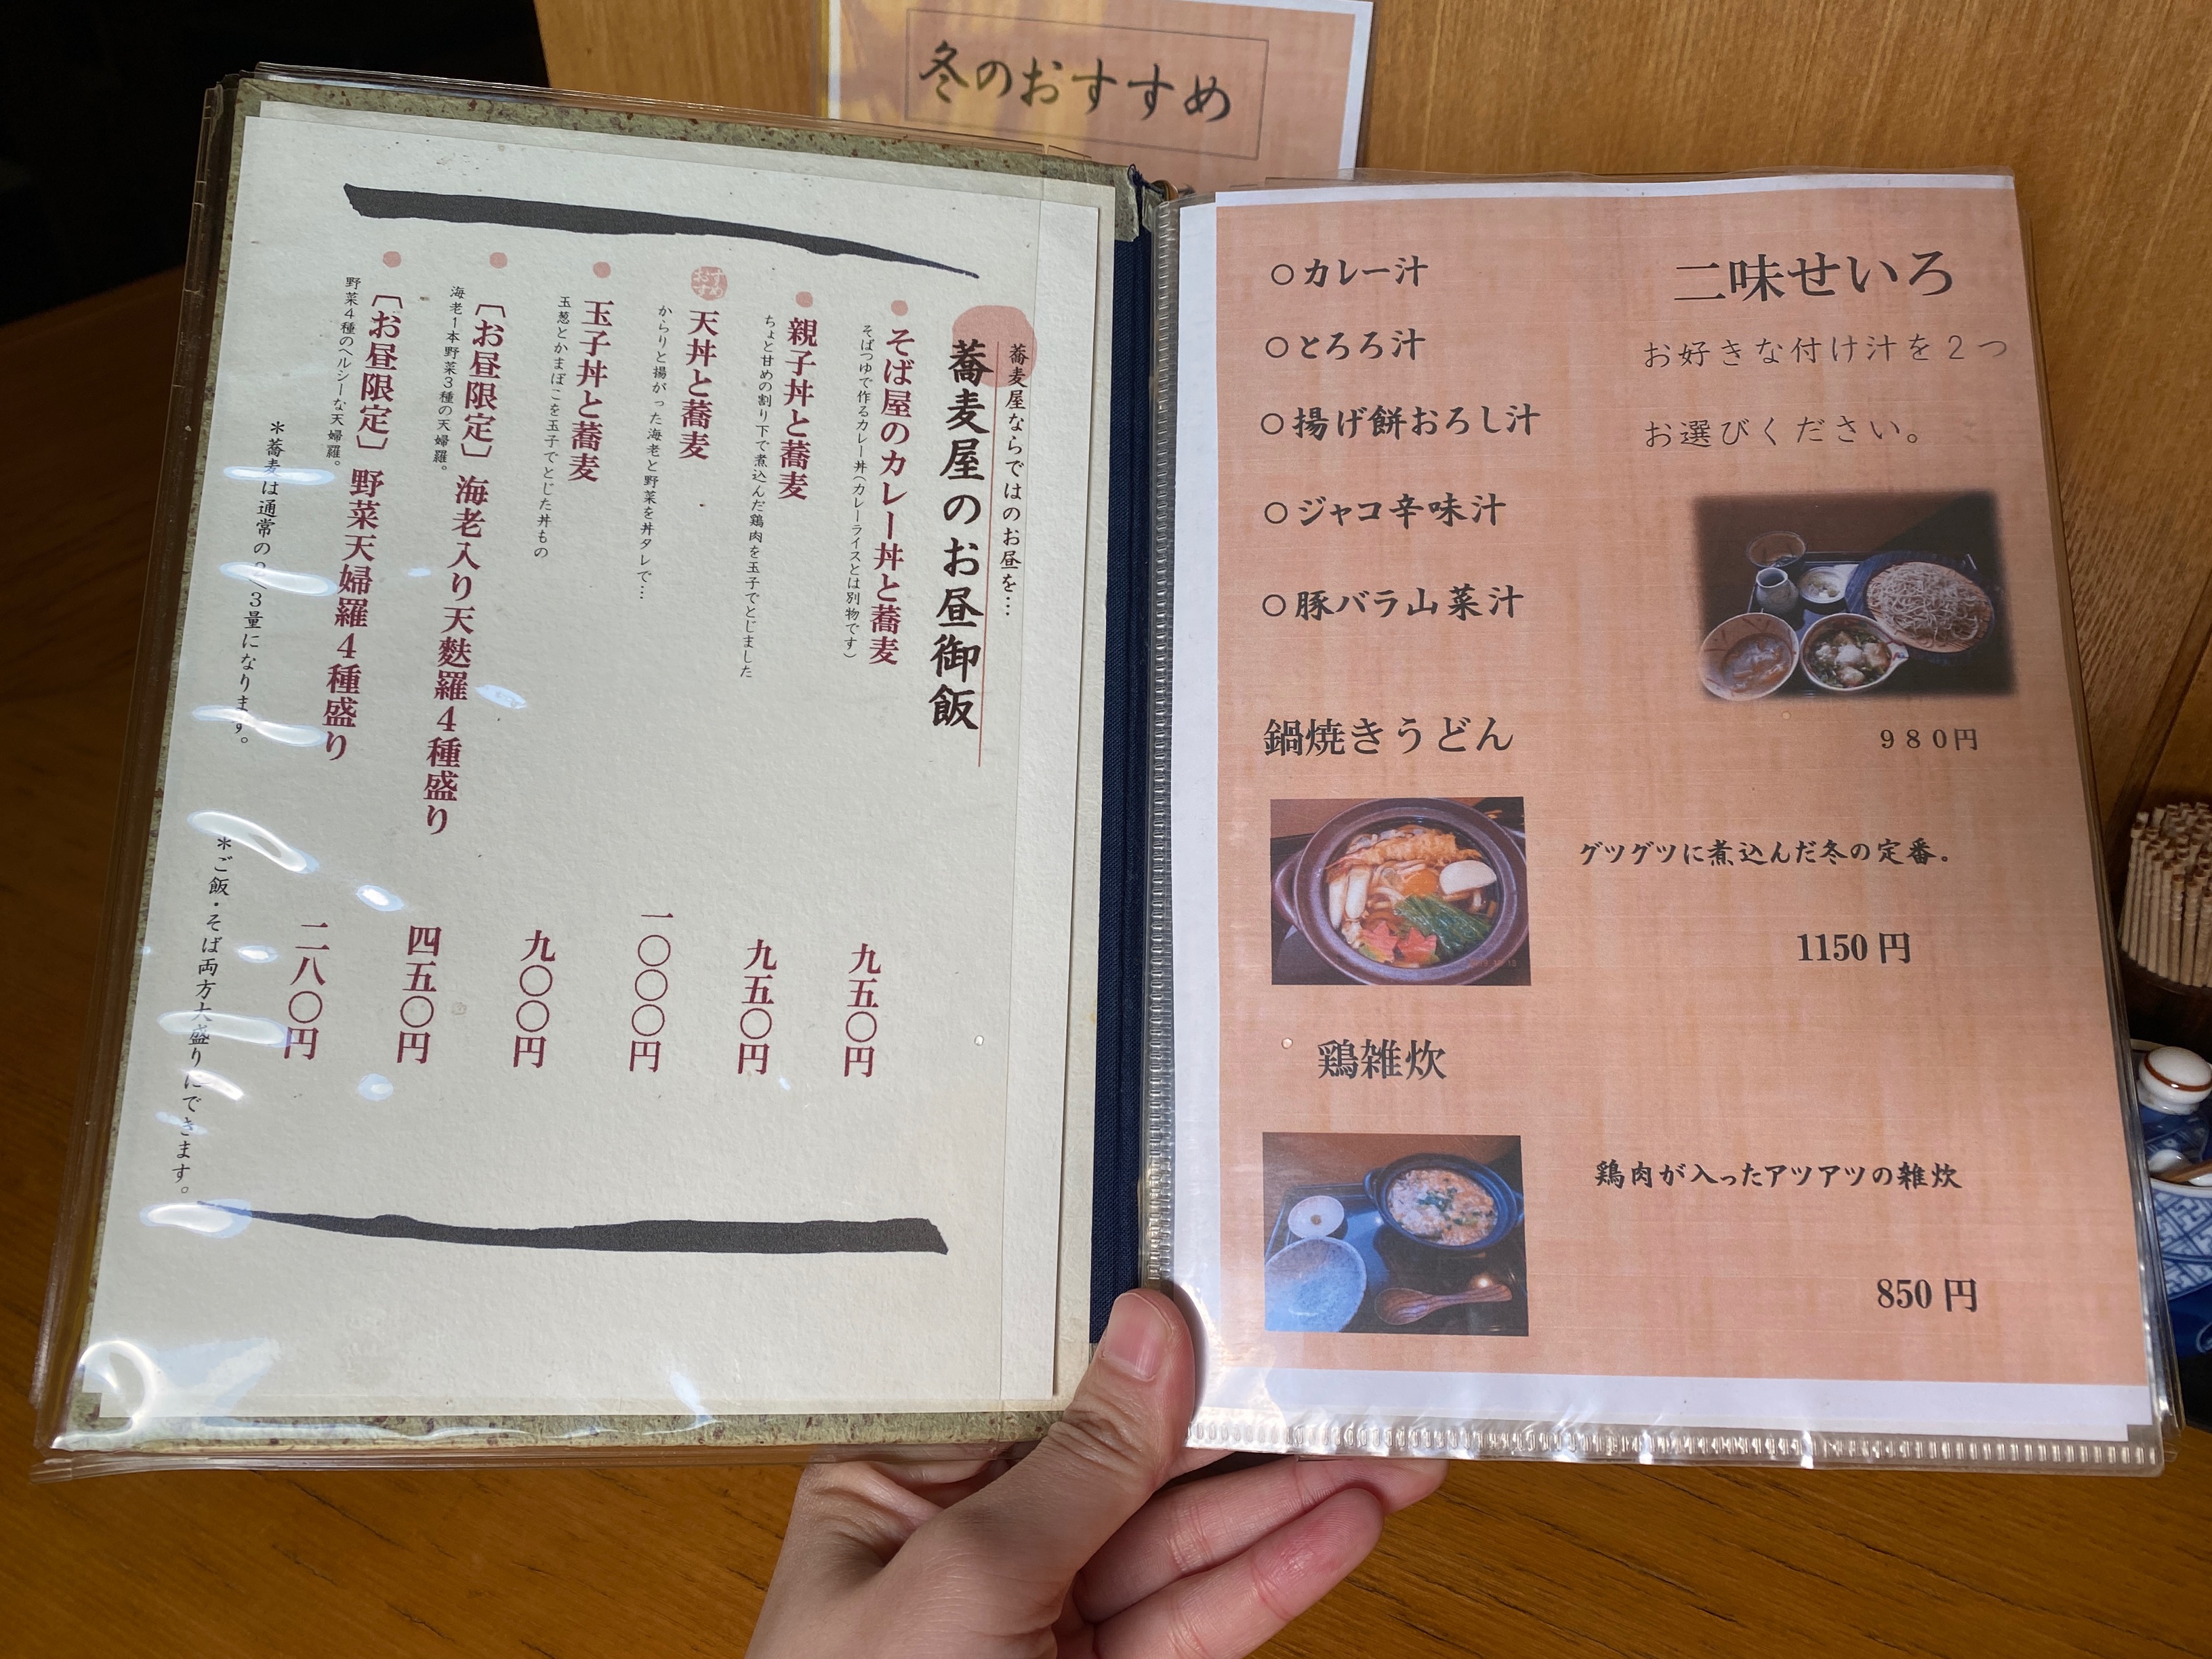 冬のおすすめ
蕎麦屋ならではのお昼を…
蕎麦屋のお昼御飯
そば屋のカレー丼と蕎麦
そばつゆで作るカレー丼(カレーライスとは別物です)
九五〇円
親子丼と蕎麦
ちょと甘めの割り下で煮込んだ鶏肉を玉子でとじました
九五〇円
おすすめ
天丼と蕎麦
からりと揚がった海老と野菜を丼タレで…
一〇〇〇円
玉子丼と蕎麦
玉葱とかまぼこを玉子でとじた丼もの
九〇〇円
〔お昼限定〕 海老入り天麩羅4種盛り
海老1本野菜3種の天婦羅。
四五〇円
〔お昼限定〕 野菜天婦羅4種盛り
野菜4種のヘルシーな天婦羅。
二八〇円
*蕎麦は通常の2/3量になります。
*ご飯・そば両方大盛りにできます。
二味せいろ
お好きな付け汁を2つ
お選びください。
○カレー汁
○とろろ汁
○揚げ餅おろし汁
○ジャコ辛味汁
○豚バラ山菜汁
980円
鍋焼きうどん
グツグツに煮込んだ冬の定番。
1150円
鶏雑炊
鶏肉が入ったアツアツの雑炊
850円